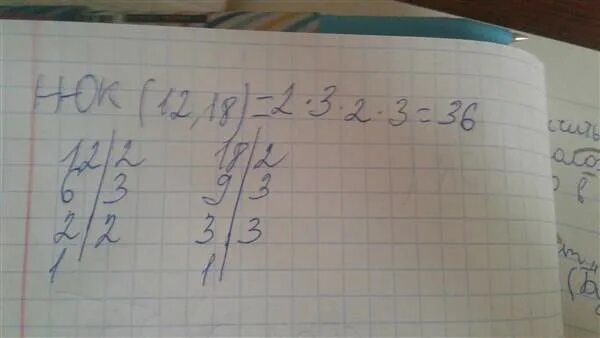 НОК (12,18)=2·3·2·3=36
12|2 18|2
6|3 9|3
2|2 3|3
1| 1|